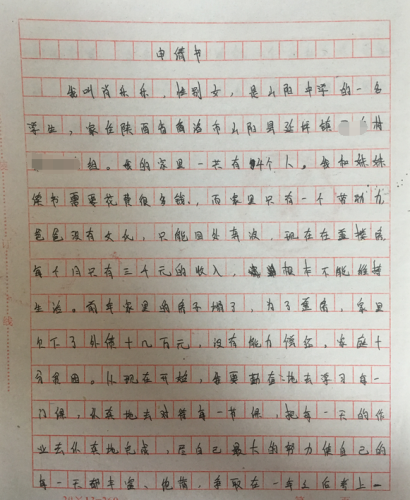 申请书
我叫肖乐乐，性别女，是山阳中学的一名
学生，家住陕西省商洛市山阳县延坪镇 村
组。我的家里一共有4个人。我和妹妹
读书需要花费很多钱，而家里只有一个劳动力
爸爸没有文化，只能四处奔波，现在在盖楼房
每个月只有三千元的收入，根本不能维持
生活。前年家里的房子塌了，为了盖房，家里
欠下了外债十几万元，没有能力偿还，家庭十
分贫困。从现在开始，我要勤奋地去学习每一
门课，认真地去对待每一节课，把每一天的作
业去认真地完成，尽自己最大的努力使自己的
每一天都丰富、饱满，争取在一年以后考上一